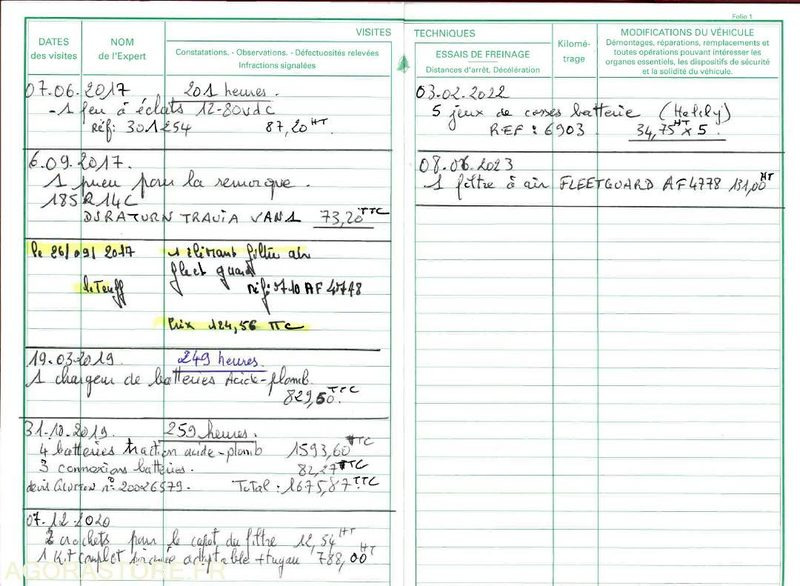 Folio 1
VISITES
TECHNIQUES
DATES
des visites
NOM
de l'Expert
Constatations. - Observations. - Défectuosités relevées
Infractions signalées
ESSAIS DE FREINAGE
Distances d'arrêt, Décélération
Kilomé-
trage
MODIFICATIONS DU VÉHICULE
Démontages, réparations, remplacements et
toutes opérations pouvant intéresser les
organes essentiels, les dispositifs de sécurité
et la solidité du véhicule.
07.06.2017 201 heures.
- 1 feu à éclats 12-80vdc
Réf: 301254 87,20 HT
6.09.2017.
1 pneu pour la remorque.
185R14C
DURATURN TRAVIA VAN1 73,20 TTC
le 26/09/2017 1 élément filtre air
fleet guard
Réf: AF 4778
Prix 124,56 TTC
19.03.2019 249 heures.
1 chargeur de batteries Acide-plomb.
829,50 TTC
31.10.2019. 259 heures.
4 batteries traction acide-plomb 1593,60 TTC
3 connexions batteries. 82,27 TTC
devis n° 20026579. Total: 1675,87 TTC
07.12.2020
2 crochets pour le capot du filtre 12,54 HT
1 Kit complet adaptable + tuyau 788,00 HT
03.02.2022
5 jeux de cosses batterie
REF: 6903 34,75 HT x 5.
08.06.2023
1 filtre à air FLEETGUARD AF4778 131,00 HT
AGORASTORE.FR